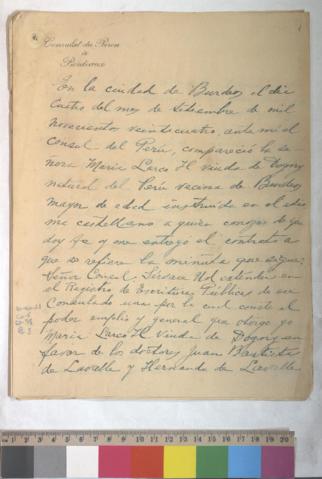 Consulat du Pérou
à
Bordeaux
En la ciudad de Burdeos el día
cuatro del mes de Setiembre de mil
novecientos veinticuatro, ante mi el
Consul del Perú, compareció la se-
ñora Maria Larco H viuda de Dogny
natural del Perú vecina de Burdeos
mayor de edad instruida en el idio
ma castellano a quien conozco de que
doy fe y me entregó el contrato a
que se refiere la minuta que sigue:
Señor Consul, Sirvase Ud extender en
el Registro de Escrituras Públicas de su
Consulado una por la cual conste el
poder amplio y general que otorgo yo
Maria Larco H Viuda de Dogny en
favor de los doctores Juan Bautista
de Lavalle y Hernando de Lavalle
1 2 3 4 5 6 7 8 9 10 11 12 13 14 15 16 17 18 19 20